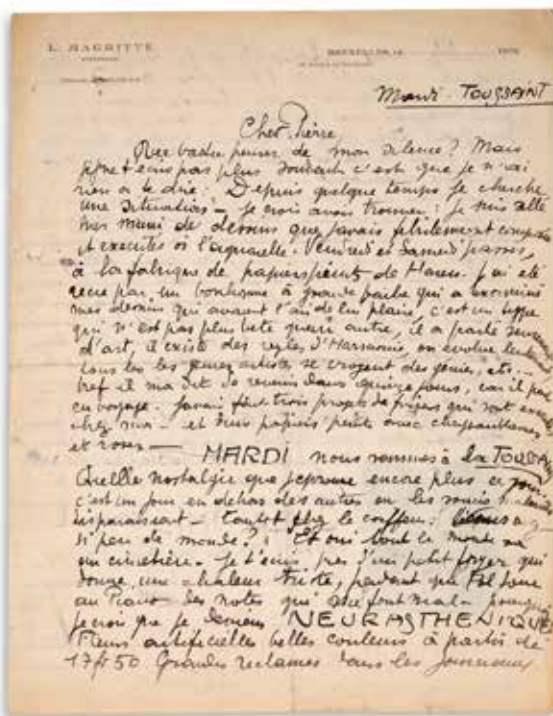 L. MAGRITTE
BRUXELLES, LE 19
Mardi - TOUSSAINT
Cher Pierre
Que vas tu penser de mon silence? Mais
si je ne t'ecris pas plus souvent c'est que je n'ai
rien a te dire. Depuis quelque temps je cherche
une situation - je crois avoir trouver: je suis allé
muni de dessins que j'avais fébrilement composés
et executés à l'aquarelle. Vendredi et Samedi passés,
à la fabrique de papierspeints de Haren. J'ai eté
recu par un bonhomme à grande barbe qui a examiné
mes dessins qui avaient l'air de lui plaire, c'est un type
qui n'est pas plus bete qu'un autre, il a parlé
d'art, il existe des regles d'Harmonie, on evolue
tous les jeunes artistes se croyent des genies, etc...
bref il m'a dit de revenir dans quinze jours, car il part
en voyage. J'avais fait trois projets de frises qui sont
chez moi - et deux papiers peints avec chrysanthemes
et roses — MARDI nous sommes à la TOUSSA
Quelle nostalgie que j'eprouve encore plus ce jour
c'est un jour en dehors des autres ou les
disparaissent - tantot chez le coiffeur:
si peu de monde? : Et oui tout le monde va
au cimetière. Je t'ecris pres d'un petit foyer qui
donne une chaleur triste, pendant que Pol
au Piano des notes qui me font mal - pourquoi
je crois que je deviens NEURASTHENIQUE
Fleurs artificielles belles couleurs à partir de
17f50 Grandes reclames dans les journaux